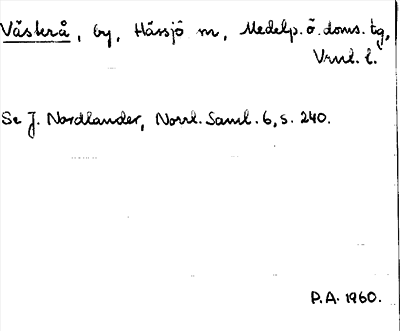 Västerå, by, Hässjö sn, Medelp. ö. doms. tg,
Vrnl. l.
Se J. Nordlander, Norrl. Saml. 6, s. 240.
P.A. 1960.